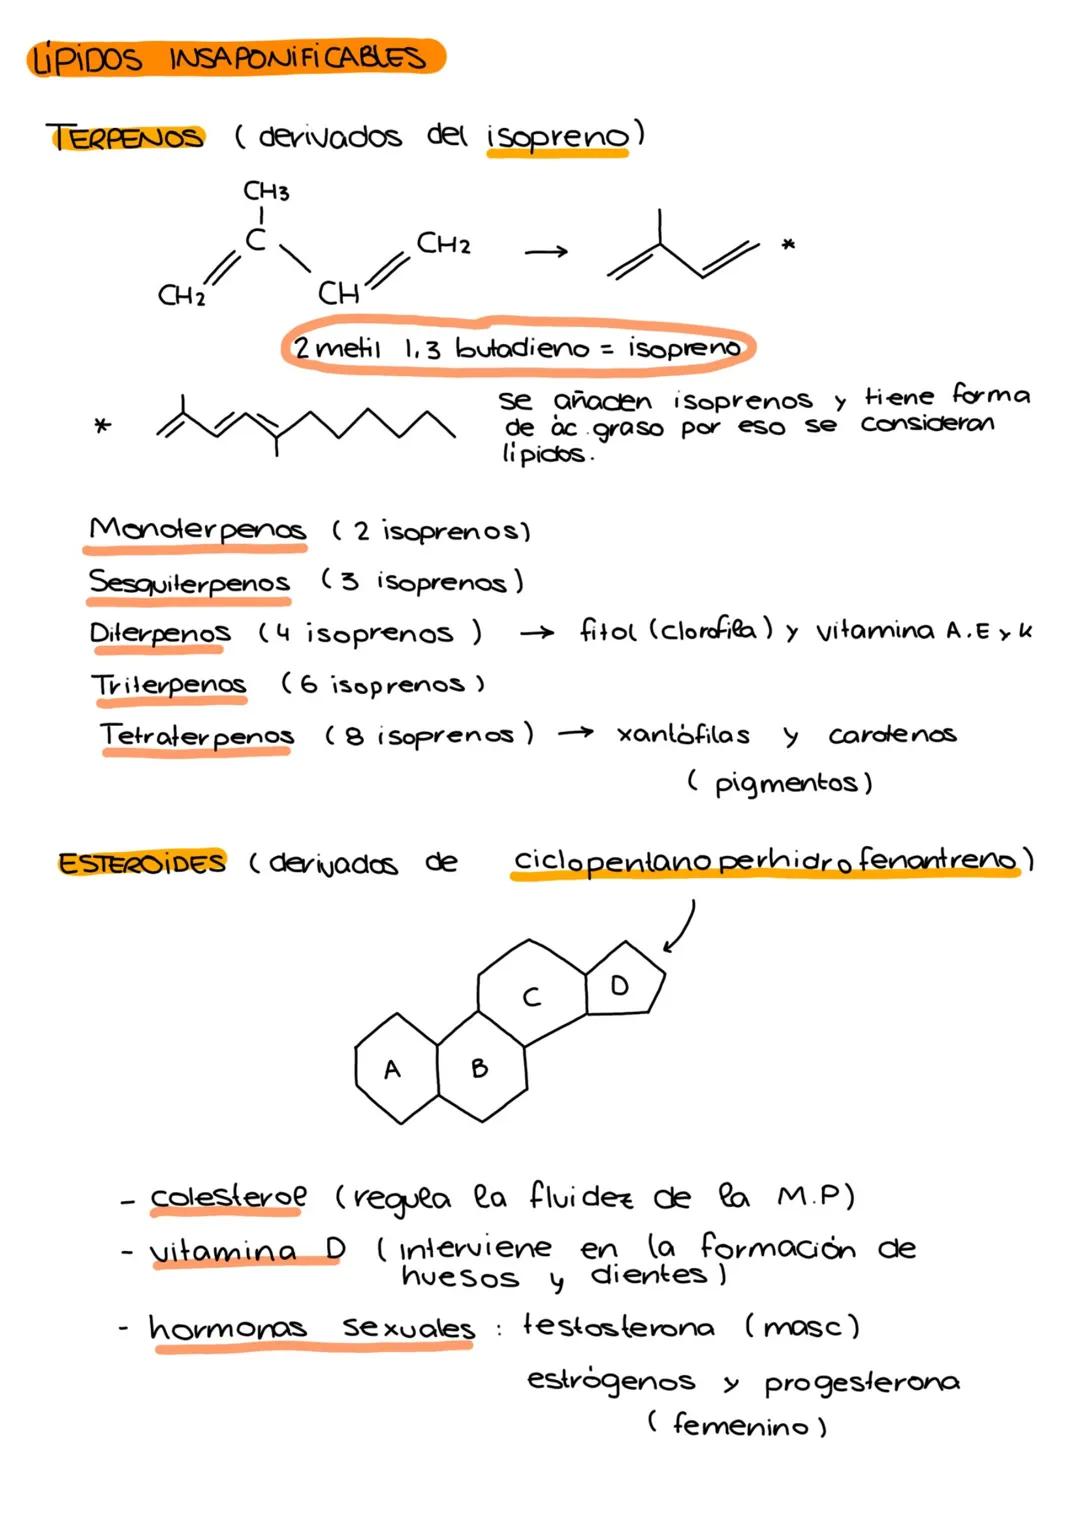 LÍPIDOS INSAPONIFICABLES
TERPENOS (derivados del isopreno)
CH3
C
CH2
CH2
CH
*
2 metil 1,3 butadieno = isopreno
*
se añaden isoprenos y tiene forma
de ác. graso por eso se consideran
lípidos.
Monoterpenos (2 isoprenos)
Sesquiterpenos (3 isoprenos)
Diterpenos (4 isoprenos) → fitol (clorofila) y vitamina A.E y K
Triterpenos (6 isoprenos)
Tetraterpenos (8 isoprenos) → xantófilas y carotenos
(pigmentos)
ESTEROÍDES (derivados de ciclopentano perhidrofenantreno)
C
D
A
B
- colesterol (regula la fluidez de la M.P)
- vitamina D (interviene en la formación de
huesos y dientes)
- hormonas sexuales : testosterona (masc)
estrógenos y progesterona
(femenino)